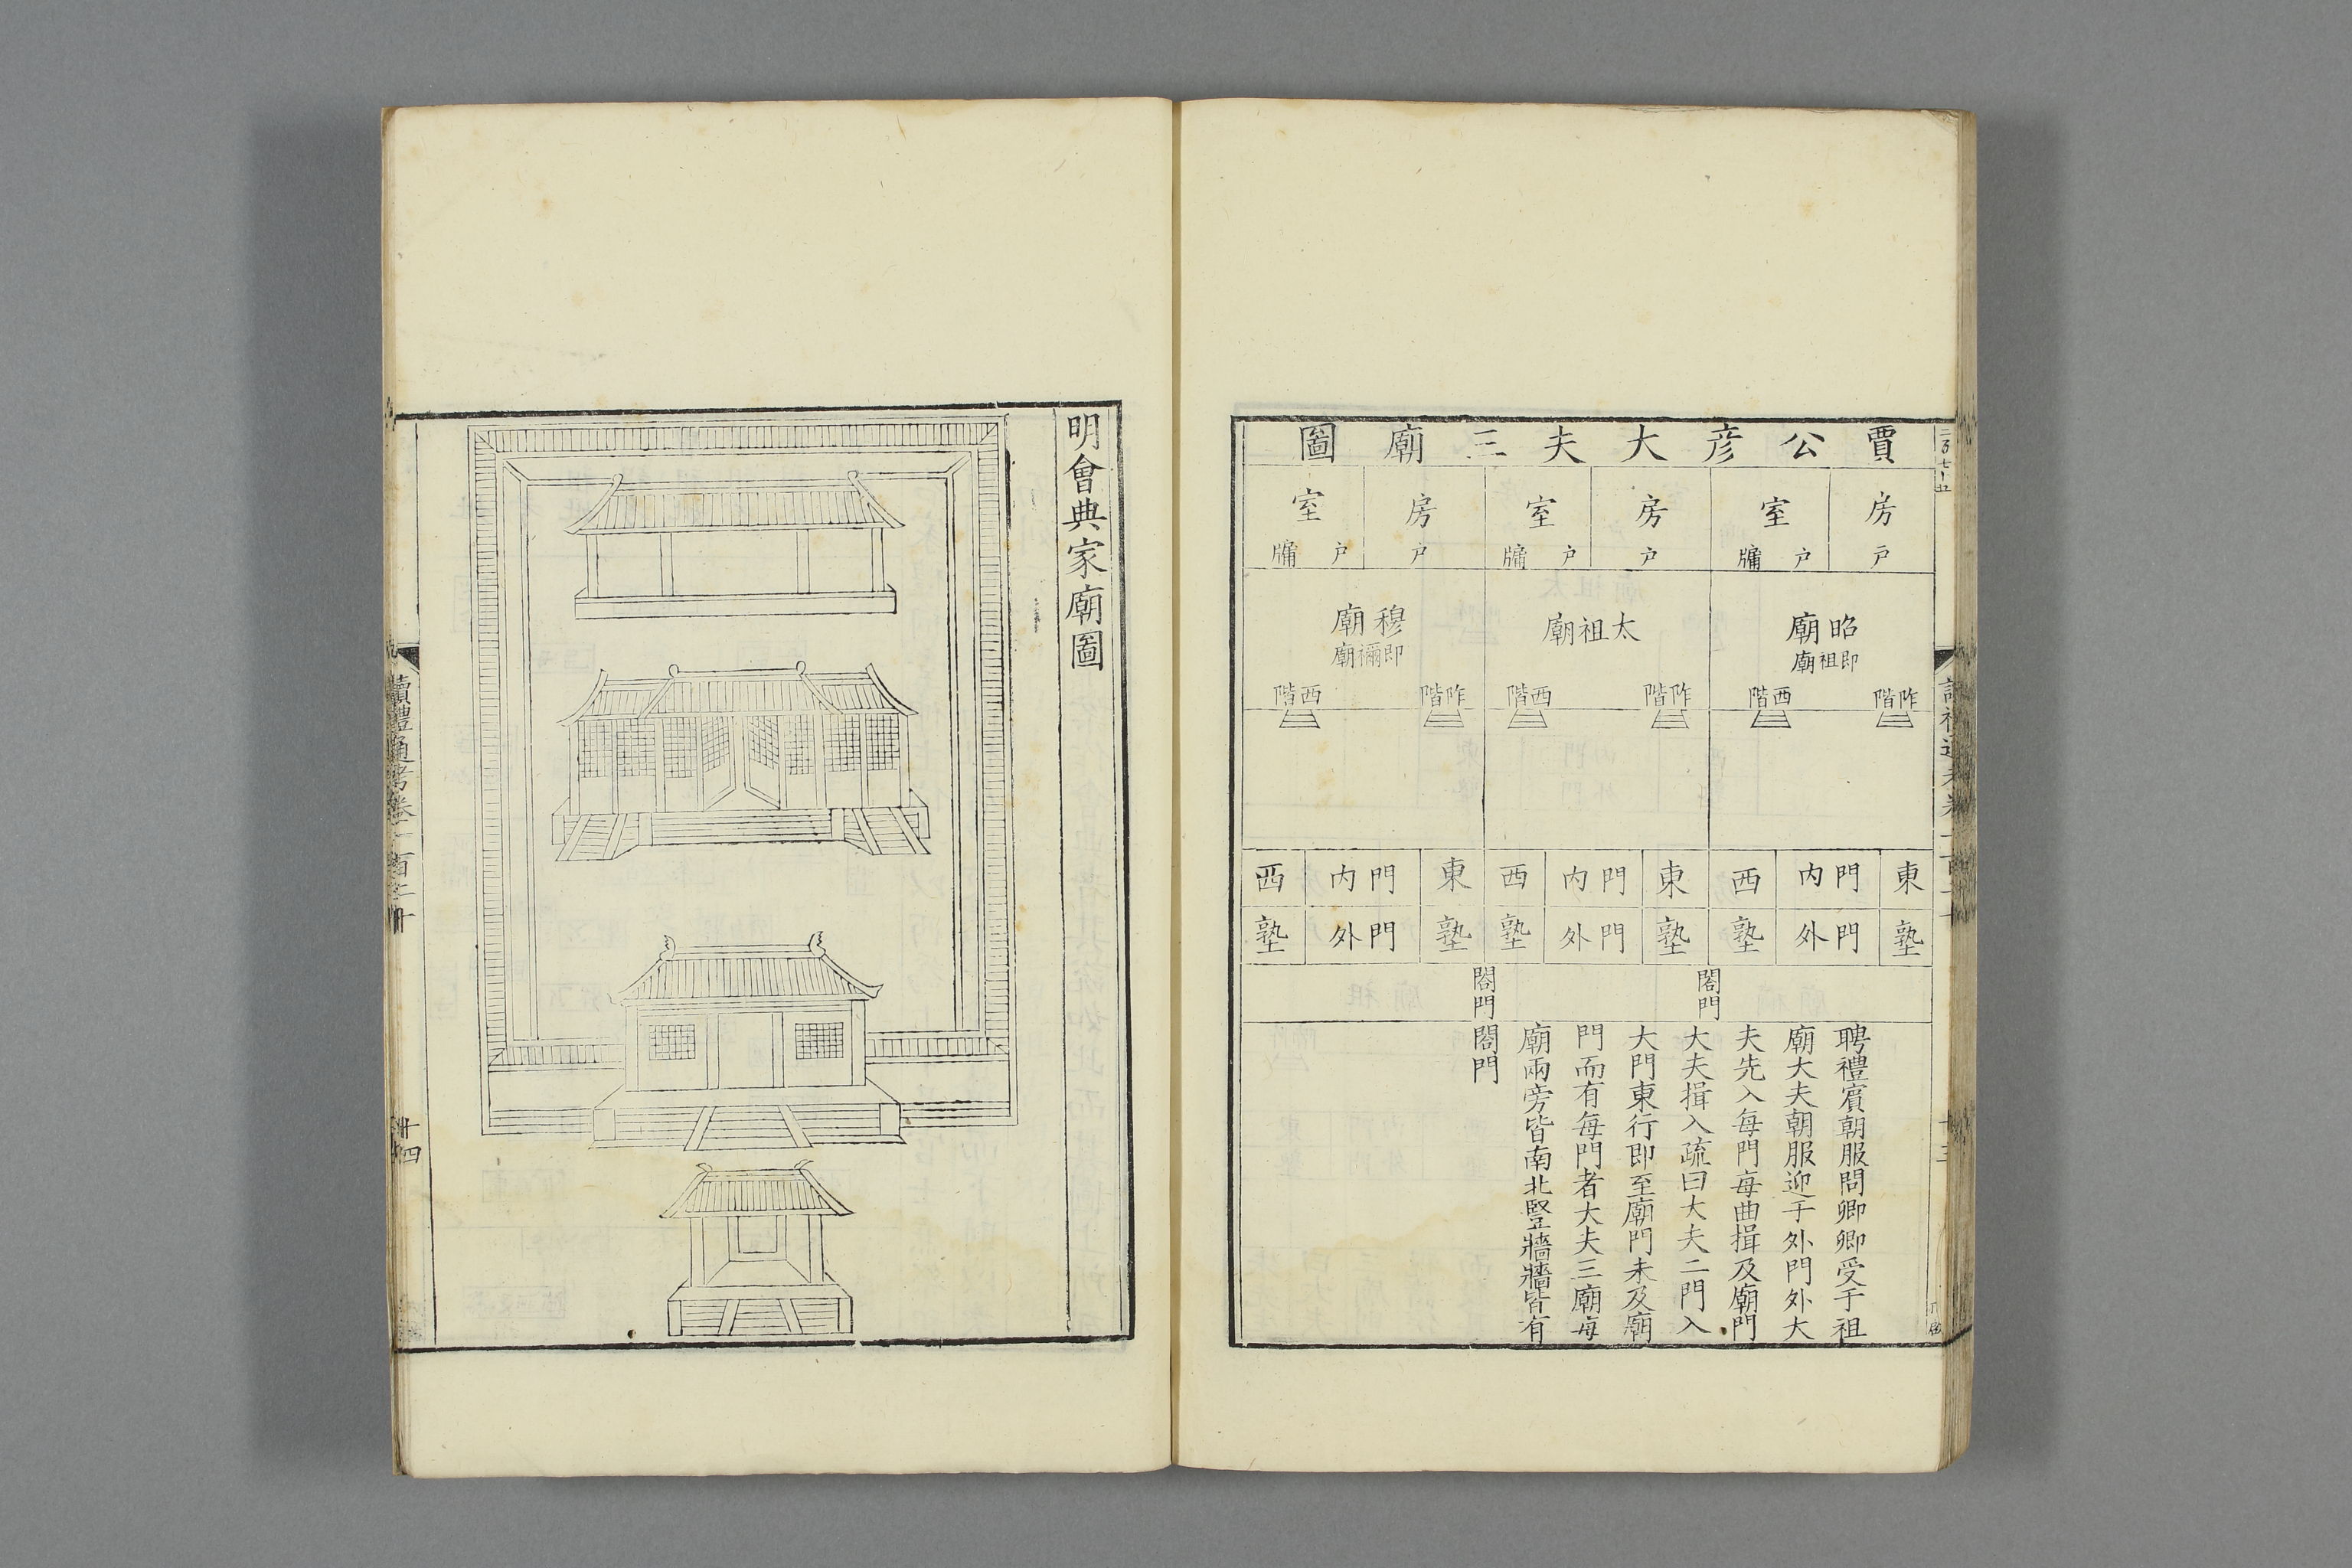 賈公彦大夫三廟圖
房 室 房 室 房 室
戸 戸 牖 戸 戸 牖 戸 戸 牖
昭廟
即祖廟
太祖廟
穆廟
即禰廟
阼階 西階 阼階 西階 阼階 西階
東 門内 西 東 門内 西 東 門内 西
塾 門外 塾 塾 門外 塾 塾 門外 塾
閤門 閤門
聘禮賔朝服問卿卿受于祖
廟大夫朝服迎于外門外大
夫先入每門每曲揖及廟門
大夫揖入疏曰大夫二門入
大門東行即至廟門未及廟
門而有每門者大夫三廟每
廟兩旁皆南北豎牆牆皆有
閤門
明會典家廟圖
讀禮通考卷一百二十
十四